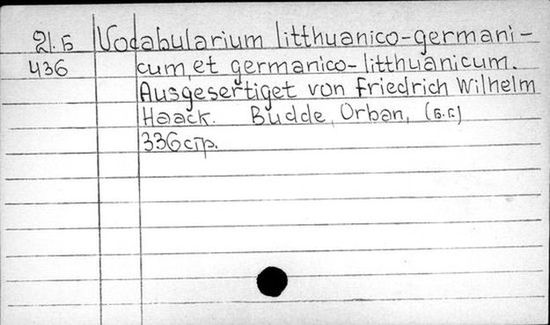 21.Б Vocabularium litthuanico-germani-
436 cum, et germanico-litthuanicum.
Ausgesertiget von Friedrich Wilhelm
Haack. Budde, Orban, (б.г.)
336 стр.